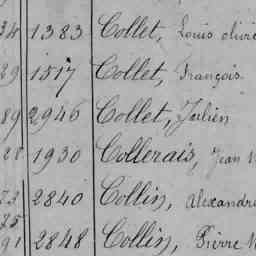 34 1383 Collet, Louis olivi
29 1517 Collet, François
89 2946 Collet, Julien
28 1930 Collerais, Jean
23 2840 Collin, Alexandre
25
91 2848 Collin, Pierre